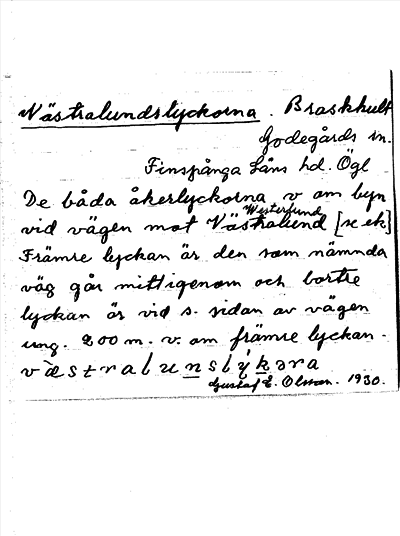 Västralundslyckorna. Braskhult
Godegårds sn.
Finspånga Läns hd. Ögl
De båda åkerlyckorna v om byn
Westerlund
vid vägen mot Västralund [se ek]
Främre lyckan är den som nämnda
väg går mittigenom och bortre
lyckan är vid s. sidan av vägen
ung. 200 m. v. om främre lyckan.
væstralunslykəra
Gustaf E. Olsson. 1930.